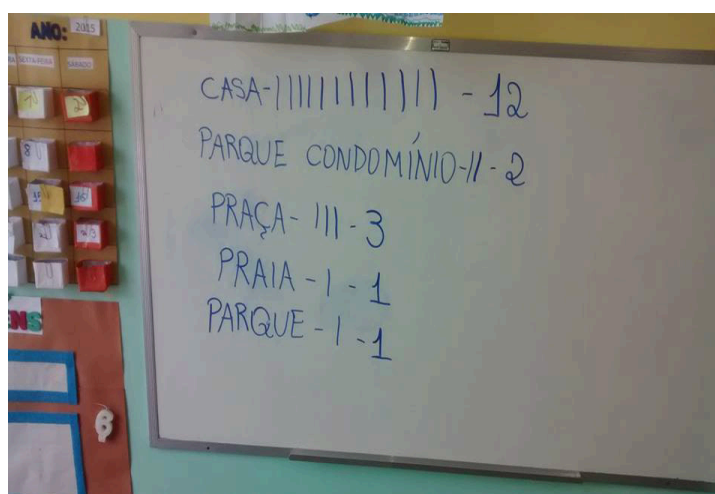 ANO: 2015
SEXTA-FEIRA SÁBADO
CASA-|||||||||||| - 12
PARQUE CONDOMÍNIO-|| - 2
PRAÇA- ||| - 3
PRAIA - | - 1
PARQUE - | - 1
ENS